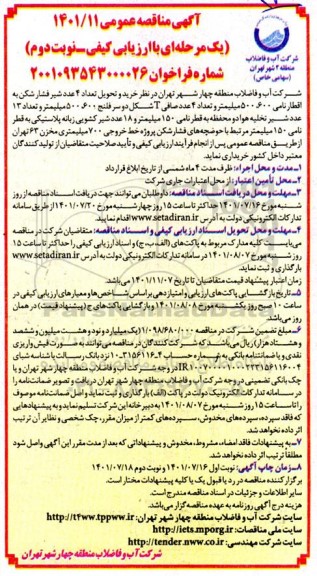 آگهی مناقصه عمومی ۱۴۰۱/۱۱
(یک مرحله‌ای با ارزیابی کیفی - نوبت دوم)
شماره فراخوان ۲۰۰۱۰۹۳۵۴۳۰۰۰۰۲۶
شرکت آب و فاضلاب
منطقه ۴ شهر تهران
(سهامی خاص)
شرکت آب و فاضلاب منطقه چهار شهر تهران در نظر خرید و تحویل تعداد ۴ عدد شیر فشارشکن به
اقطار نامی ۶۰۰ـ۵۰۰ میلیمتر و تعداد ۴ عدد صافی T شکل دو سر فلنج ۶۰۰ـ۵۰۰ میلیمتر و تعداد ۱۳
عدد شیر تخلیه هوا دو محفظه به قطر نامی ۱۵۰ میلیمتر و ۱۸ عدد شیر کشویی زبانه پلاستیکی به قطر
نامی ۱۵۰ میلیمتر مرتبط با حوضچه‌های فشارشکن پروژه خط خروجی ۷۰۰ میلیمتری مخزن ۶۳ تهران
از طریق مناقصه عمومی پس از انجام فرآیند ارزیابی کیفی و تأیید صلاحیت متقاضیان از تولیدکنندگان
معتبر داخل کشور خریداری نماید.
۱ـ مدت و محل اجراء: ظرف مدت ۴ ماه شمسی از تاریخ ابلاغ قرارداد
۲ـ محل تأمین اعتبار: از محل اعتبارات جاری شرکت
۳ـ مهلت و محل دریافت اسناد مناقصه: داوطلبان می‌توانند جهت دریافت اسناد مناقصه از روز
شنبه مورخ ۱۴۰۱/۰۷/۱۶ حداکثر تا ساعت ۱۵ روز چهارشنبه مورخ ۱۴۰۱/۰۷/۲۰ از طریق سامانه
تدارکات الکترونیکی دولت به آدرس www.setadiran.ir اقدام نمایند.
۴ـ مهلت و محل تحویل اسناد ارزیابی کیفی و اسناد مناقصه: متقاضیان شرکت در مناقصه
می‌بایست کلیه مدارک مربوط به پاکت‌های (الف، ب، ج) و اسناد ارزیابی کیفی را حداکثر تا ساعت ۱۵
روز شنبه مورخ ۱۴۰۱/۰۸/۰۷ در سامانه تدارکات الکترونیکی دولت به آدرس www.setadiran.ir
بارگذاری و ثبت نماید.
زمان اعتبار پیشنهاد قیمت متقاضیان تا تاریخ ۱۴۰۱/۱۱/۰۷ می‌باشد.
۵ـ تاریخ بازگشایی پاکت‌های ارزیابی و امتیازدهی براساس شاخص‌ها و معیارهای ارزیابی کیفی در
ساعت ۱۰ صبح روز یکشنبه مورخ ۱۴۰۱/۰۸/۰۸ و بازگشایی پاکت‌های ج (پیشنهاد قیمت) در همان
روز می‌باشد.
۶ـ مبلغ تضمین شرکت در مناقصه ۱/۰۹۸/۶۸۰/۰۰۰ (یک میلیارد و نود و هشت میلیون و ششصد
و هشتاد هزار) ریال می‌باشد که شرکت‌کنندگان در مناقصه می‌توانند به صورت فیش واریزی
نقدی و یا ضمانتنامه بانکی به شماره حساب
در وجه شرکت آب و فاضلاب منطقه چهار شهر تهران و یا
چک بانکی تضمینی در وجه شرکت آب و فاضلاب منطقه چهار شهر تهران دریافت و تصویر ضمانتنامه را
در سامانه تدارکات الکترونیک دولت در پاکت (الف) بارگذاری و ثبت نماید و اصل ضمانتنامه موصوف
را تا ساعت ۱۵ روز شنبه مورخ ۱۴۰۱/۰۸/۰۷ به دبیرخانه این شرکت تسلیم نماید و به پیشنهادهایی
که فاقد سپرده، سپرده‌های مخدوش، سپرده‌های کمتر از میزان مقرر، چک شخصی و نظایر آن ترتیب
اثر داده نخواهد شد.
۷ـ به پیشنهادات فاقد امضاء، مشروط، مخدوش و پیشنهاداتی که بعد از مدت مقرر این آگهی واصل شود
مطلقا ترتیب اثر داده نخواهد شد.
۸ـ زمان چاپ آگهی: نوبت اول ۱۴۰۱/۰۷/۱۶ و نوبت دوم ۱۴۰۱/۰۷/۱۸
برگزارکننده مناقصه در رد یا قبول یک یا کلیه پیشنهادات مختار است.
سایر اطلاعات و جزئیات در اسناد مناقصه مندرج است.
هزینه درج آگهی روزنامه به عهده مناقصه‌گزار می‌باشد.
سایت شرکت آب و فاضلاب منطقه چهار شهر تهران: http://t4ww.tpww.ir
سایت ملی مناقصات: http://iets.mporg.ir
سایت شرکت مهندسی: http://tender.nww.co.ir
شرکت آب و فاضلاب منطقه چهار شهر تهران